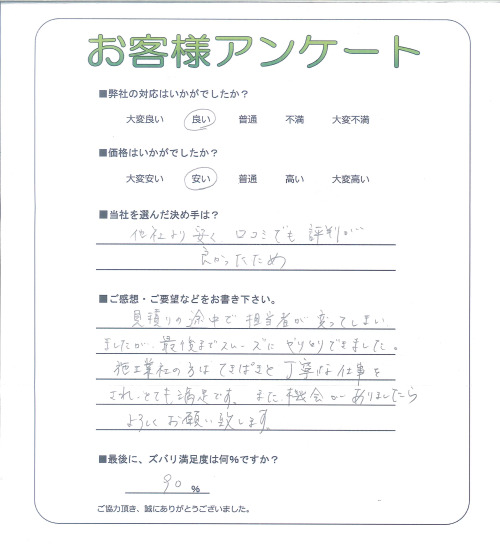 お客様アンケート
■弊社の対応はいかがでしたか？
大変良い 良い 普通 不満 大変不満
■価格はいかがでしたか？
大変安い 安い 普通 高い 大変高い
■当社を選んだ決め手は？
他社より安く 口コミでも評判が
良かったため
■ご感想・ご要望などをお書き下さい。
見積りの途中で担当者が変ってしまい
ましたが、最後までスムーズにやり切りできました。
施工業社の方はてきぱきと丁寧な仕事を
され、とても満足です。また機会がありましたら
よろしくお願い致します。
■最後に、ズバリ満足度は何%ですか？
90 %
ご協力頂き、誠にありがとうございました。